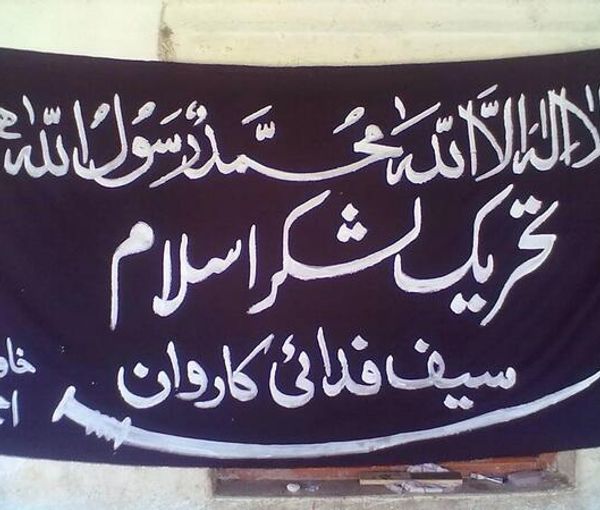 لا اله الا الله محمد رسول الله
تحریک لشکر اسلام
سیف فدائی کاروان